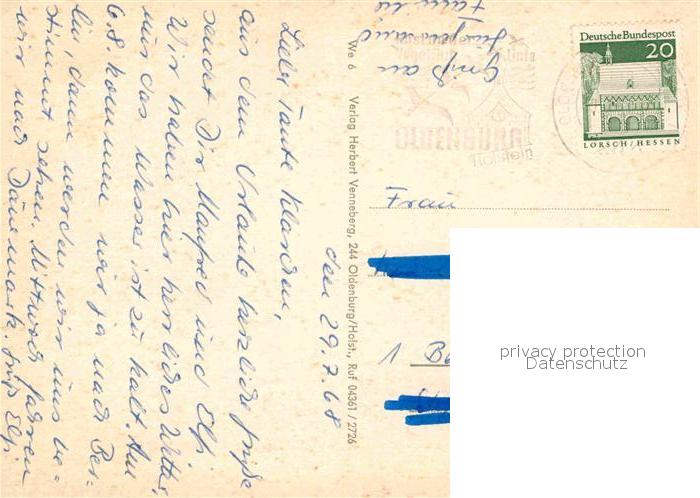 den 29.7.68
Liebe Tante Klärchen,
aus dem Urlaub herzliche Grüße
sendet Dir Manfred und Elfi.
Wir haben hier herrliches Wetter
nur das Wasser ist zu kalt. Am
6.8. kommen wir ja nach Ber-
lin, dann werden wir uns be-
stimmt sehen. Mittwoch fahren
wir nach Dänemark. Gruß Elfi
Gruß an
Familie
We 6 Verlag Herbert Venneberg, 244 Oldenburg/Holst., Ruf 04361 / 2726
OLDENBURG
Holstein
Deutsche Bundespost
20
LORSCH/HESSEN
Frau
1 Be
privacy protection
Datenschutz